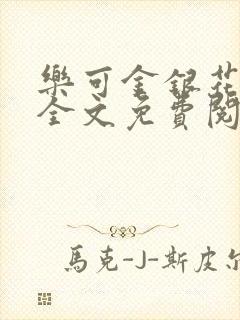 樂可金銀花
全文免費閱
馬克-J-斯皮尔